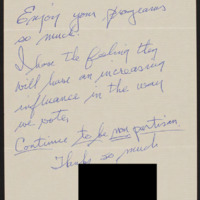 Enjoy your programs
so much.
I have the feeling they
will have an increasing
influence in the way
we vote.
Continue to be non partisan
Thanks so much